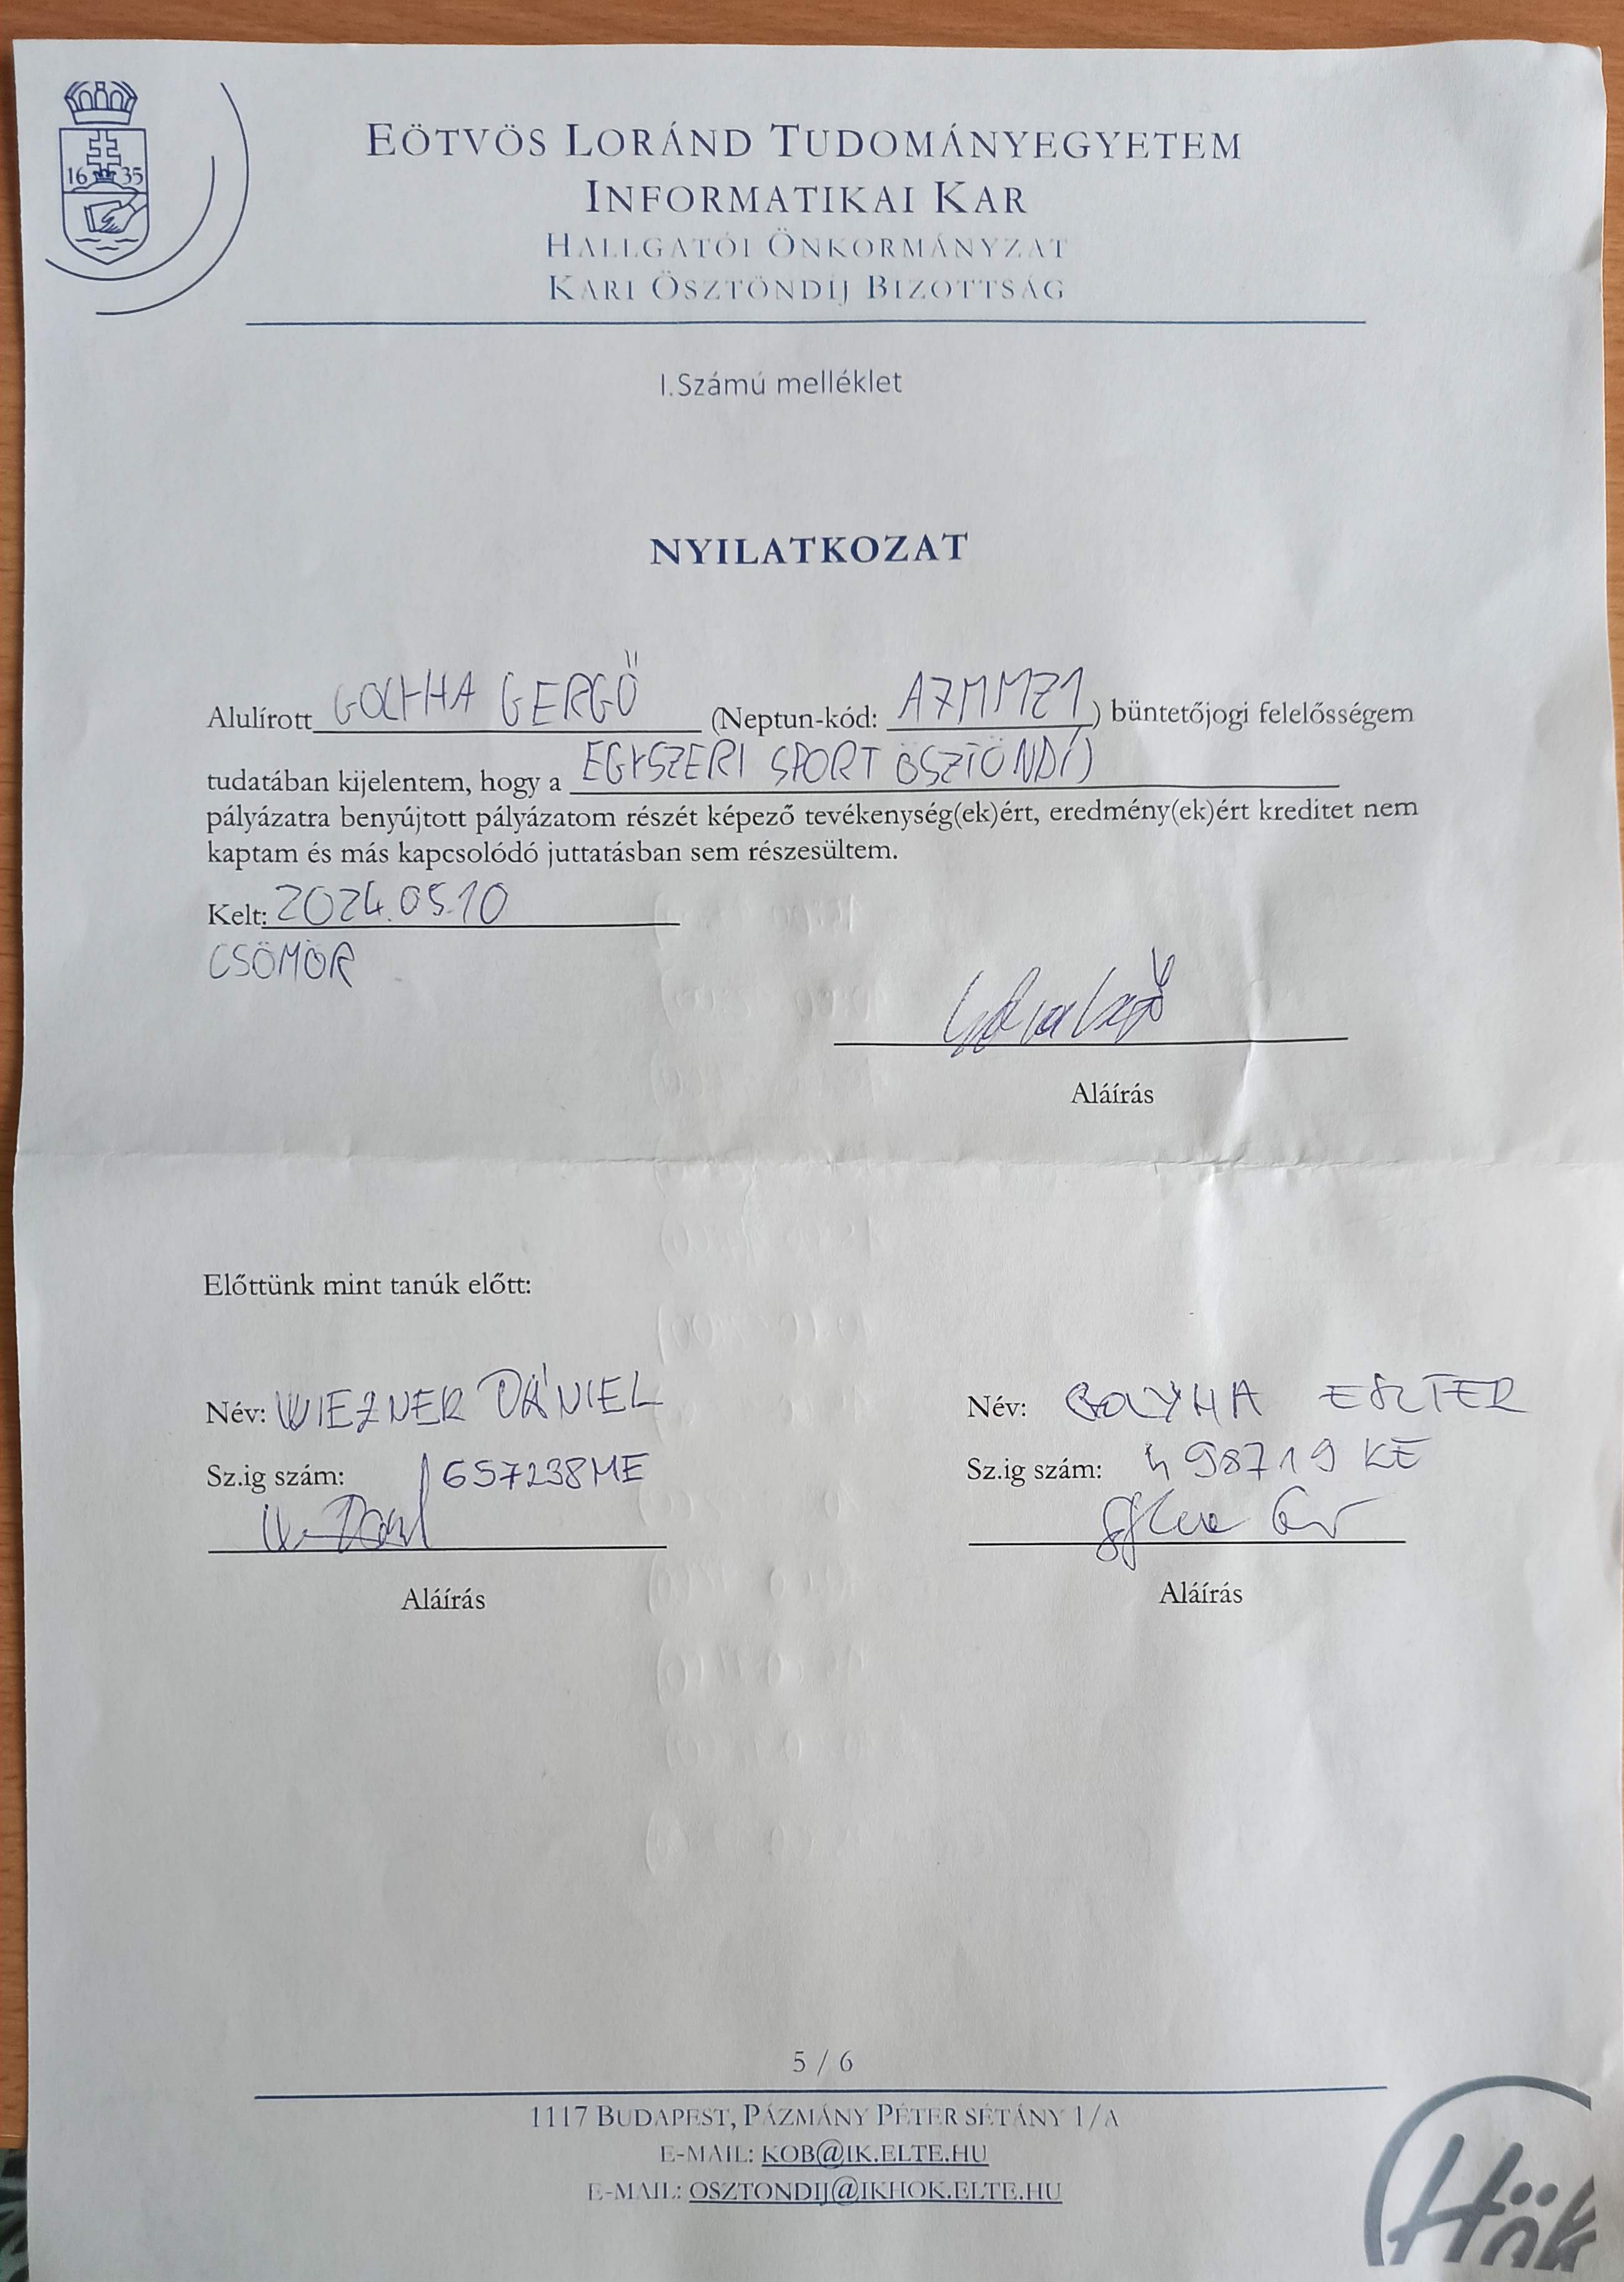 16 35
EÖTVÖS LORÁND TUDOMÁNYEGYETEM
INFORMATIKAI KAR
HALLGATÓI ÖNKORMÁNYZAT
KARI ÖSZTÖNDÍJ BIZOTTSÁG
I.Számú melléklet
NYILATKOZAT
Alulírott GERGŐ (Neptun-kód: A7MMZ1) büntetőjogi felelősségem
tudatában kijelentem, hogy a EGYSZERI SPORT ÖSZTÖNDÍJ
pályázatra benyújtott pályázatom részét képező tevékenység(ek)ért, eredmény(ek)ért kreditet nem
kaptam és más kapcsolódó juttatásban sem részesültem.
Kelt: 2024.05.10
CSÖMÖR
Aláírás
Előttünk mint tanúk előtt:
Név: WIEZNER DÁNIEL
Név: ESZTER
Sz.ig szám: 657238ME
Sz.ig szám: 498719 KE
Aláírás
Aláírás
5 / 6
1117 BUDAPEST, PÁZMÁNY PÉTER SÉTÁNY 1/A
E-MAIL: KOB@IK.ELTE.HU
E-MAIL: OSZTONDIJ@IKHOK.ELTE.HU
Hök